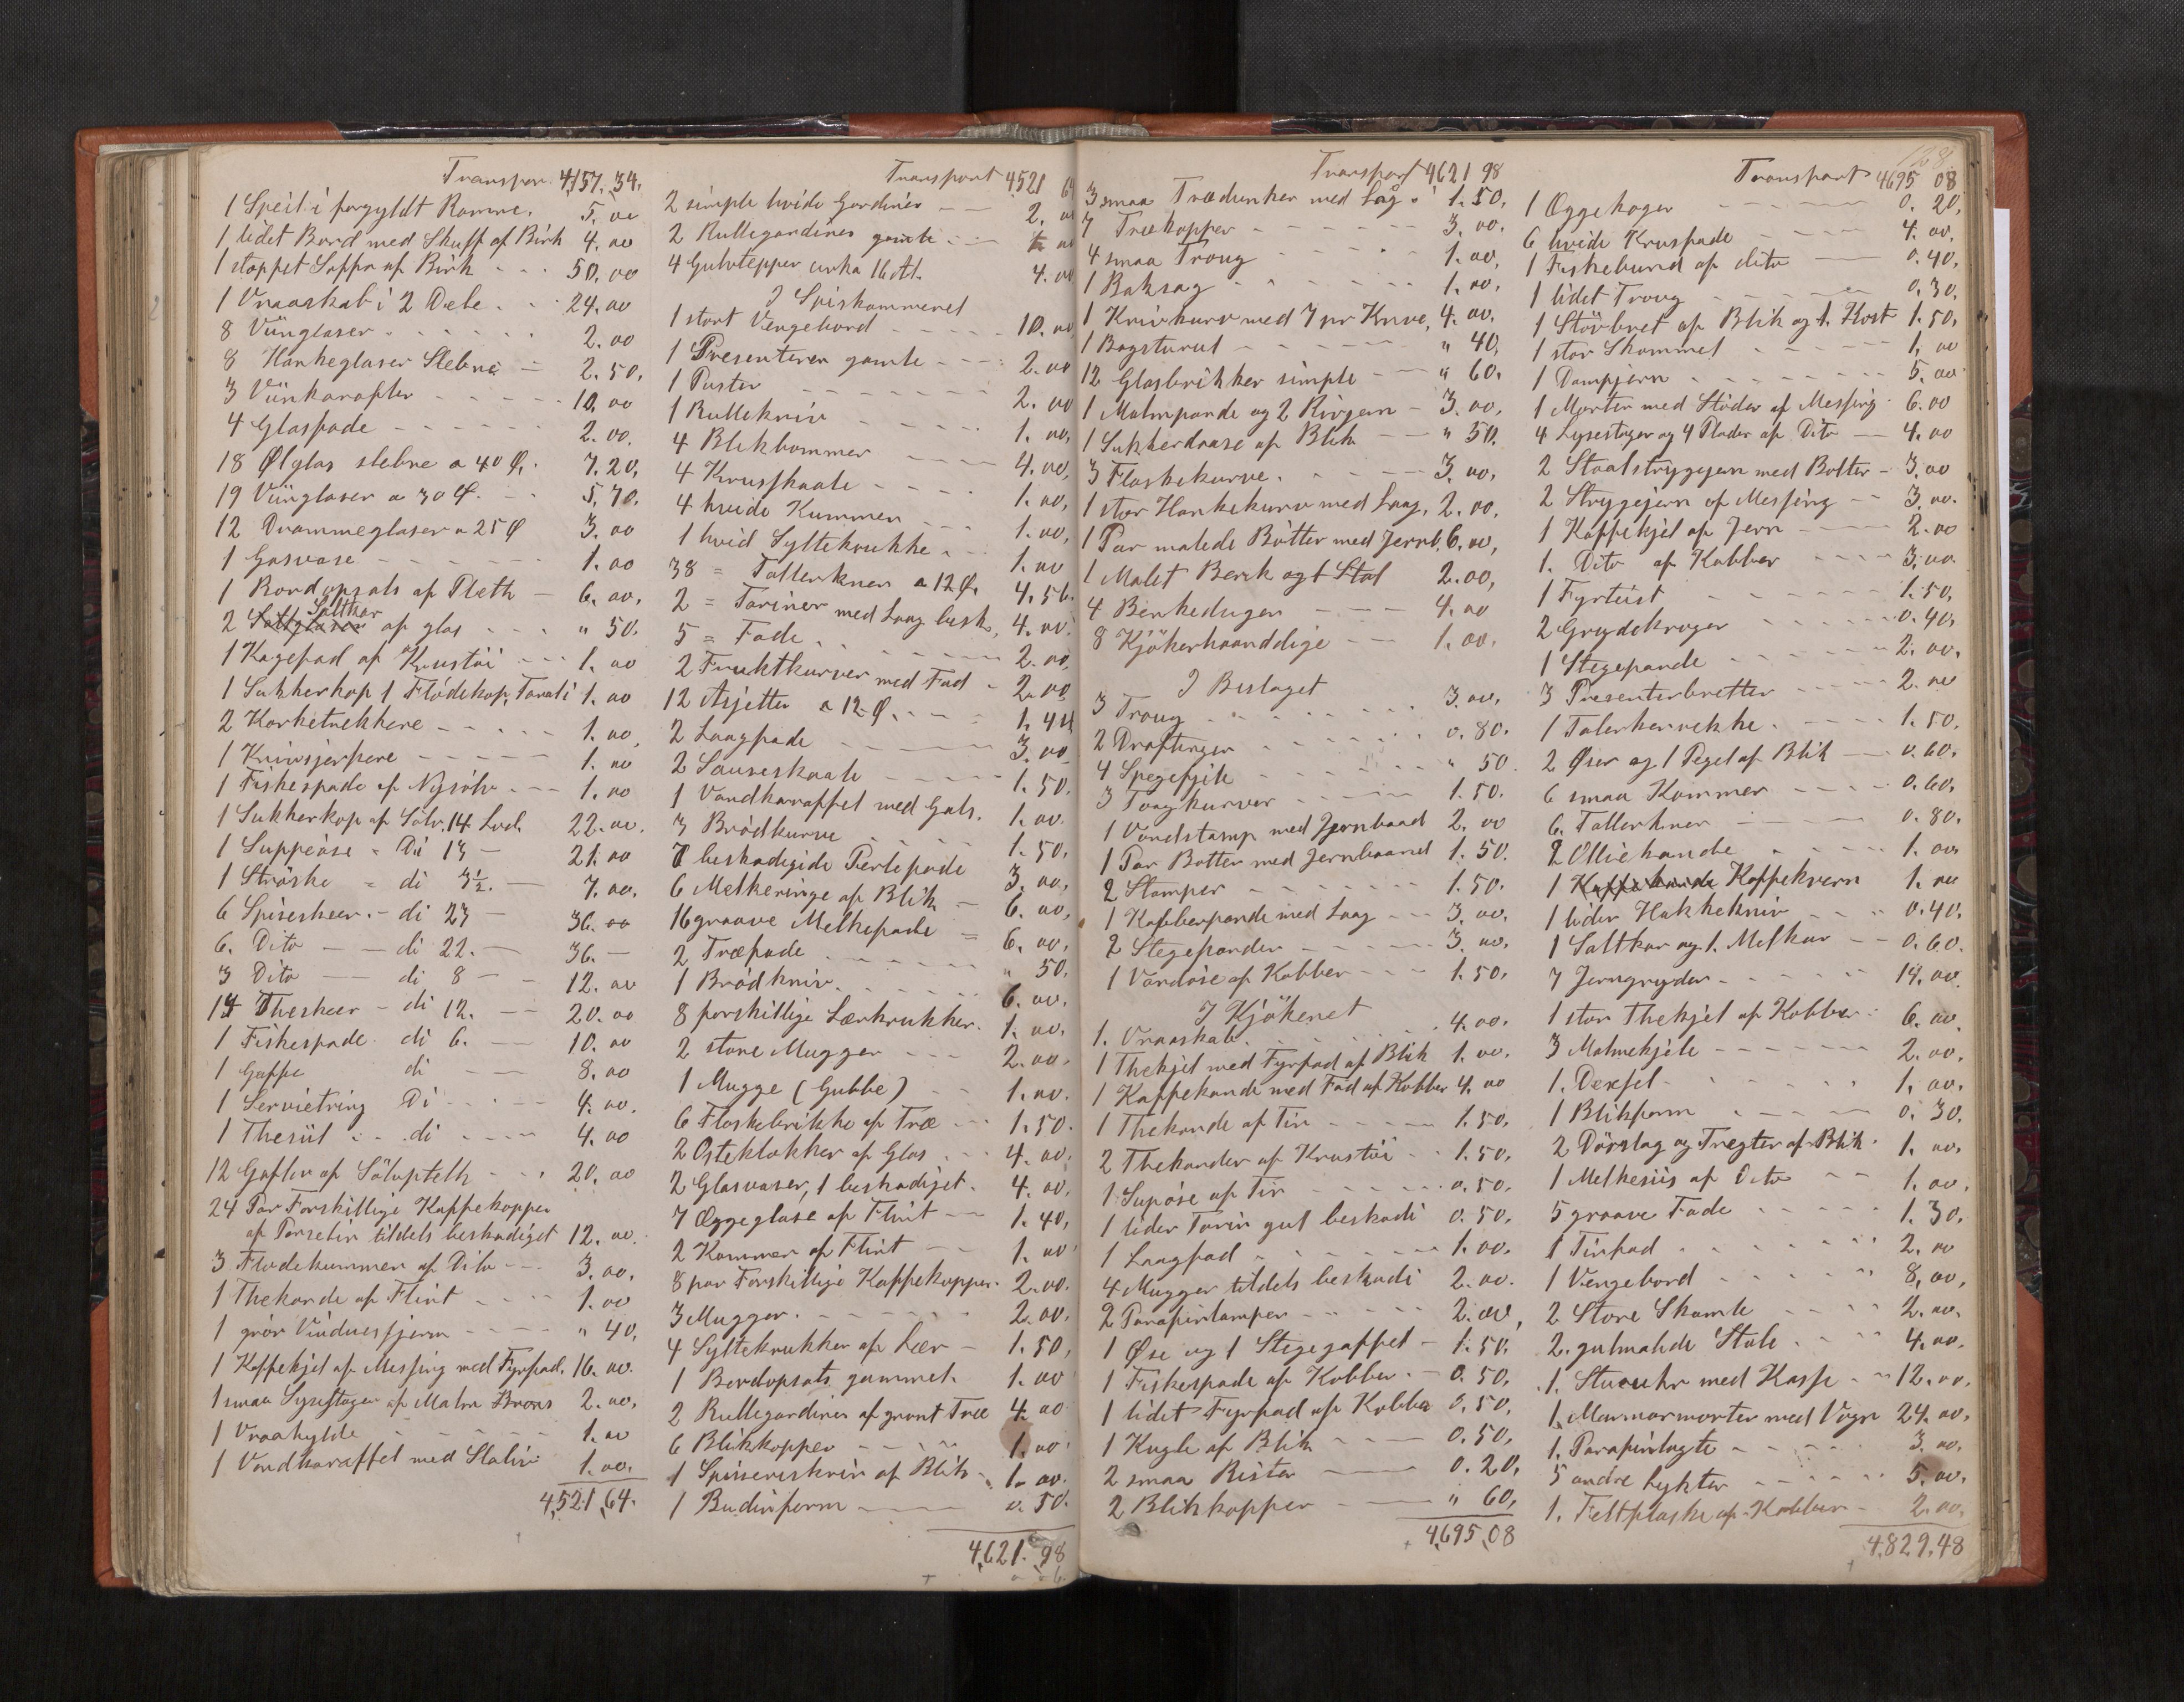 Transpor. 4,157. 34.
1 Speil i forgyldt Ramme. 5. 00
1 lidet Bord med Skuff af Birk 4. 00
1 stoppet Soffa af Birk 50. 00
1 Vraaskab i 2 Dele. 24. 00
8 Viinglaser 2. 00
8 Hankeglaser Slebne 2. 50.
3 Viinkarafler 10. 00
4 Glasfade 2. 00.
18 Ølglas slebne a 40 Ø. 7. 20.
19 Viinglaser a 30 Ø. 5. 70.
12 Drammeglaser a 25 Ø 3. 00
1 Gasvase 1. 00
1 Bordopsats af Pleth 6. 00.
2 Saltglaser Saltkar af glas " 50.
1 Kagefad af Krustøi 1. 00
1 Sukkerkop 1 Flödekop, 1. 00
2 Korketrekkere 1. 00
1 Knivsjerpere 1. 00
1 Fiskespade af Nysölv 1. 00
1 Sukkerkop af Sölv. 14 Lod. 22. 00.
1 Suppeöse " Di 13 21. 00
1 Ströske " di 3½. 7. 00.
6 Spiseskeer. di 23 36. 00
6. Dito di 22. 36. —
3 Dito di 8 12. 00
14 Theskeer di 12. 20. 00
1 Fiskespade di 6. 10. 00
1 Gaffe di 8. 00
1 Servietring Di 4. 00.
1 Thesiil di 4. 00
12 Gafler af Sölvpleth 20. 00
24 Par Forskillige Kaffekopper
af Porselin tildels beskadiget 12. 00.
3 Flödekummer af Dito 3. 00.
1 Thekande af Flint 1. 00
1 grön Vindueskjerm " 40,
1 Kaffekjel af Messing med Fyrfad. 16. 00.
1 smaa Lysestager af Malm Brons 2. 00.
1 Vraahylde 1. 00
1 Vandkaraffel med Stativ 1. 00.
4,521 64.
Transport 4521 64
2 simple hvide Gardiner 2. 00
2 Rullegardiner gamle 00
4 Gulvtepper cirka 16 Al. 4. 00
I Spiskammeret
1 stort Vengebord 10. 00
1 Presenterer gamle 2. 00
1 Puster 2. 00
1 Rullekniv 1. 00,
4 Blikbommer 4. 00,
4 Krusskaale 1. 00,
4 hvide Kummer 1. 00,
1 hvid Syltekrukke 1. 00
38 = Tallerkner a 12 Ø. 4. 56.
2 = Tariner med Laag besk, 4. 00.
5 = Fade. 2. 00,
2 Fruktkurver med Fad 2. 00,
12 Asjetter a 12 Ø. 1. 44
2 Laagfade 3. 00
2 Sauseskaale 1. 50.
1 Vandkaraffel med Gals. 1. 00.
3 Brödkurve 1. 50,
7 beskadigide Pertefade 3. 00,
6 Melkeringe af Blik 6. 00,
16 graave Melkefade 6. 00.
2 Træfade " 50.
1 Brödkniv. 6. 00.
8 forskillige Lærkrukker. 1. 00.
2 store Mugger 2. 00.
1 Mugge (Gubbe) 1. 00.
6 Flaskebrikke af Træ 1. 50.
2 Osteklokker af Glas 4. 00.
2 Glasvaser, 1 beskadiget. 4. 00,
7 Æggeglase af Flint 1. 40,
2 Kommer af Flint 1. 00
8 par Forskillige Kaffekopper. 2. 00.
3 Mugger. 2. 00.
4 Syltekrukker af Lær 1. 50,
1 Bordopsats gammel. 1. 00
2 Rullegardiner af grønt Træ 4. 00
6 Blikkopper 1. 00.
1 Spisereskrin af Blik 1. 00.
1 Budinform 0. 50.
4,621. 98
Transport 4621 98
3 smaa Trædunker med Låg. 1. 50,
7 Trækopper 3. 00.
4 smaa Troug 1. 00,
1 Baksag 1. 00.
1 Knivkurv med 7 pr Knive, 4. 00.
1 Bogsturul " 40.
12 Glasbrikker simple " 60.
1 Malmpande og 2 Rivjern 3. 00,
1 Sukkerdaase af Blik " 50.
3 Flaskekurve. 3. 00.
1 stor Hankekurv med Laag, 2. 00.
1 Par malede Bötter med Jernb, 6. 00,
1 Malet Benk og 1 Stol 2. 00,
4 Benkeduger 4. 00
8 Kjökerhaanddüge 1. 00.
I Beslaget
3 Troug 3. 00,
2 Drafteger 0. 80.
4 Spegefjele " 50.
3 Tougkurver 1. 50.
1 Vandstamp med Jernbaad 2. 00
1 Par Botter med Jernbaand 1. 50.
2 Stamper 1. 50.
1 Kobberpande med Laag 3. 00.
2 Stegepander 3. 00.
1 Vandöse af Kobber 1. 50.
I Kjökenet
1. Vraaskab 4. 00.
1 Thekjel med Fyrfad af Blik 1. 00.
1 Kaffekande med Fad af Kobber 4. 00
1 Thekande af Tin 1. 50,
2 Thekander af Krustöi 1. 50,
1 Supöse af Tin 0. 50,
1 liden Tarin gul beskadi 0. 50,
1 Laagfad 1. 00.
4 Mugger tildels beskadi 2. 00.
2 Parafinlamper 2. 00,
1 Øse og 1 Stegegaffel 1. 50.
1 Fiskespade af Kobber. 0. 50,
1 lidet Fyrfad af Kobber 0. 50,
1 Kugle af Blik 0. 50,
2 smaa Rister 0. 20,
2 Blikkopper " 60,
4,695,08
128
Transport 4695 08
1 Æggekoger 0. 20,
6 hvide Krusfade 4. 00,
1 Fiskebund af dito 0. 40,
1 lidet Troug 0. 30,
1 Stövbret af Blik og 1. Kost 1. 50,
1 stor Skammel 1, 00
1 Dampjern 5. 00
1 Morter med Stöder af Messing 6. 00
4 Lysestager og 4 Plader af Dito 4. 00
2 Staalstrygejern med Bolter 3. 00
2 Strygejern af Messing 3. 00.
1 Kaffekjel af Jern 2. 00
1. Dito af Kobber 3. 00.
1 Fyrteist 1. 50,
2 Grydekroger 0. 40,
1 Stegepande 2. 00,
3 Presenterbretter 2. 00
1 Talerkenrekke 1. 50.
2 Øser og 1 Pegel af Blik 0. 60.
6 smaa Kommer 0. 60,
6. Tallerkner 0. 80.
2 Olliekande 1. 00
1 Kaffekande Kaffekvern 1. 00
1 liden Hakkekniv 0. 40.
1 Saltkar og 1. Melkar 0. 60.
7 Jerngryder 14. 00.
1 stor Thekjel af Kobber 6. 00.
3 Malmekjele 2. 00.
1. Dexsel 1. 00.
1 Blikform 0. 30.
2 Dörslag og Tregter af Blik 1. 00.
1 Melkesiis af Dito 1. 00,
5 graave Fade 1. 30.
1 Tinfad 2. 00
1 Vengebord 8, 00,
2 Store Skamle 2. 00.
2. gulmalede Stole 4. 00.
1. Stueuhr med Kasse 12. 00.
1. Marmormorter med Vogn 24. 00.
1. Parafinlagte 3. 00.
5 andre Lykter 5. 00.
1. Feltflaske af Kobber 2. 00.
4,829,48